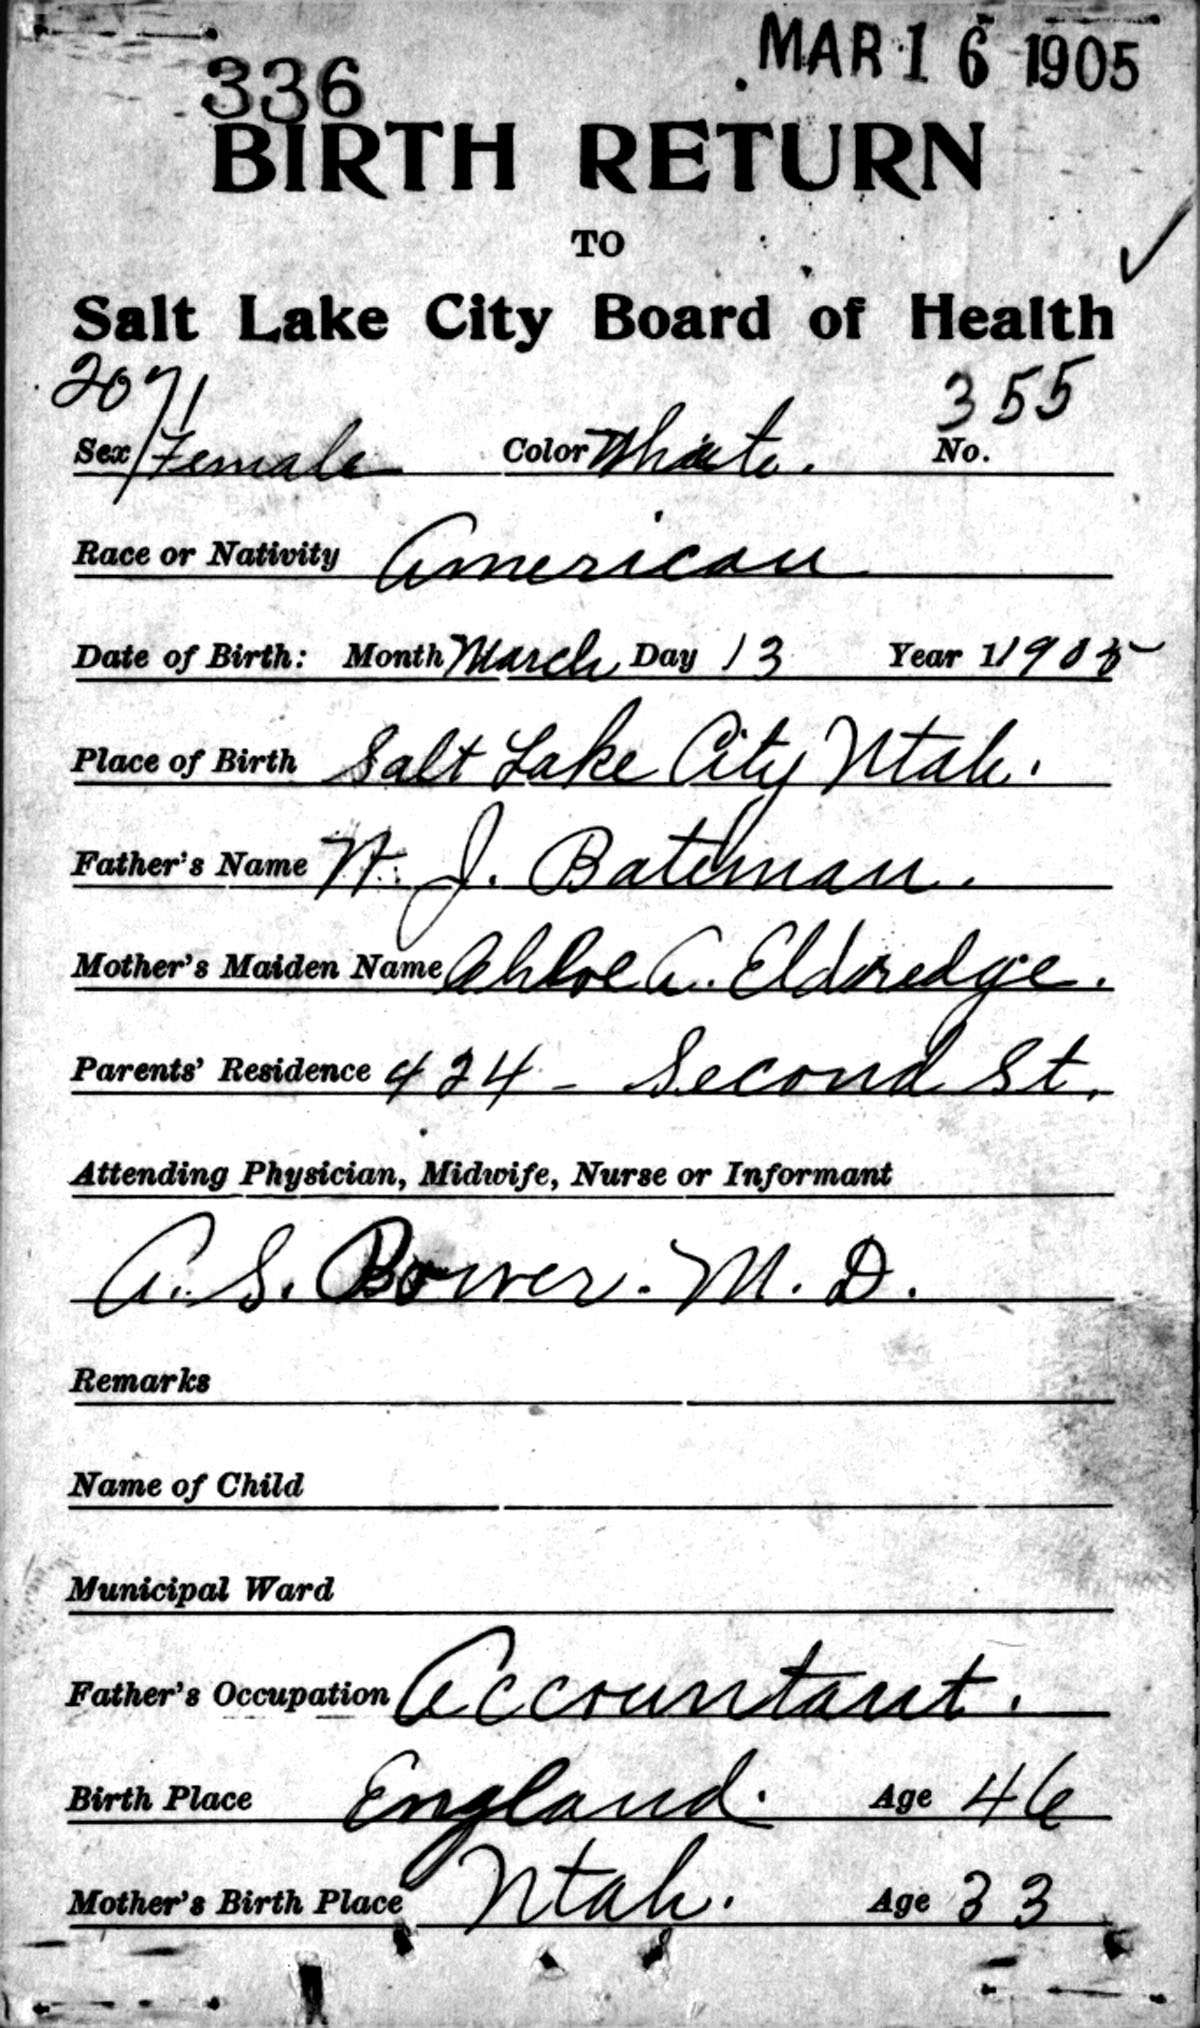 336
MAR 16 1905
BIRTH RETURN
TO
Salt Lake City Board of Health
2071
355
Sex Female Color White. No.
Race or Nativity American
Date of Birth: Month March Day 13 Year 1 1905
Place of Birth Salt Lake City Utah.
Father's Name W. J. Bateman.
Mother's Maiden Name Chloe A. Eldredge.
Parents' Residence 424 - Second St.
Attending Physician, Midwife, Nurse or Informant
A. S. Bower. M. D.
Remarks
Name of Child
Municipal Ward
Father's Occupation Accountant.
Birth Place England. Age 46
Mother's Birth Place Utah. Age 33